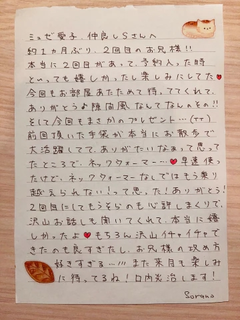 ミッゼ愛子、仲良しSさんへ
約1ヵ月ぶり、2回目のお兄様!!
本当に2回目があって、予約入った時
といっても嬉しかったし楽しみにしてた♥
今回もお部屋あたためて待っててくれて、
ありがとう♪陽向風なんてなんのその!!
そして今回もまさかのプレゼント…(TT)
前回頂いた手袋が本当にお散歩で
大活躍してて、ありがたいなぁって思って
たところで、ネックウォーマー…♥早速使っ
たけど、ネックウォーマなしではもう乗り
越えられない!って思った!ありがとう!
2回目にしてもうそらのも心許しまくりで、
沢山お話しも聞いてくれて、本当に嬉
しかったよ♥もちろん沢山イチャイチャで
きたのも良すぎたし、お兄様の攻め方
好きすぎる…!!!また来月も楽しみ
に待ってるね!口内炎治します!
Sorano